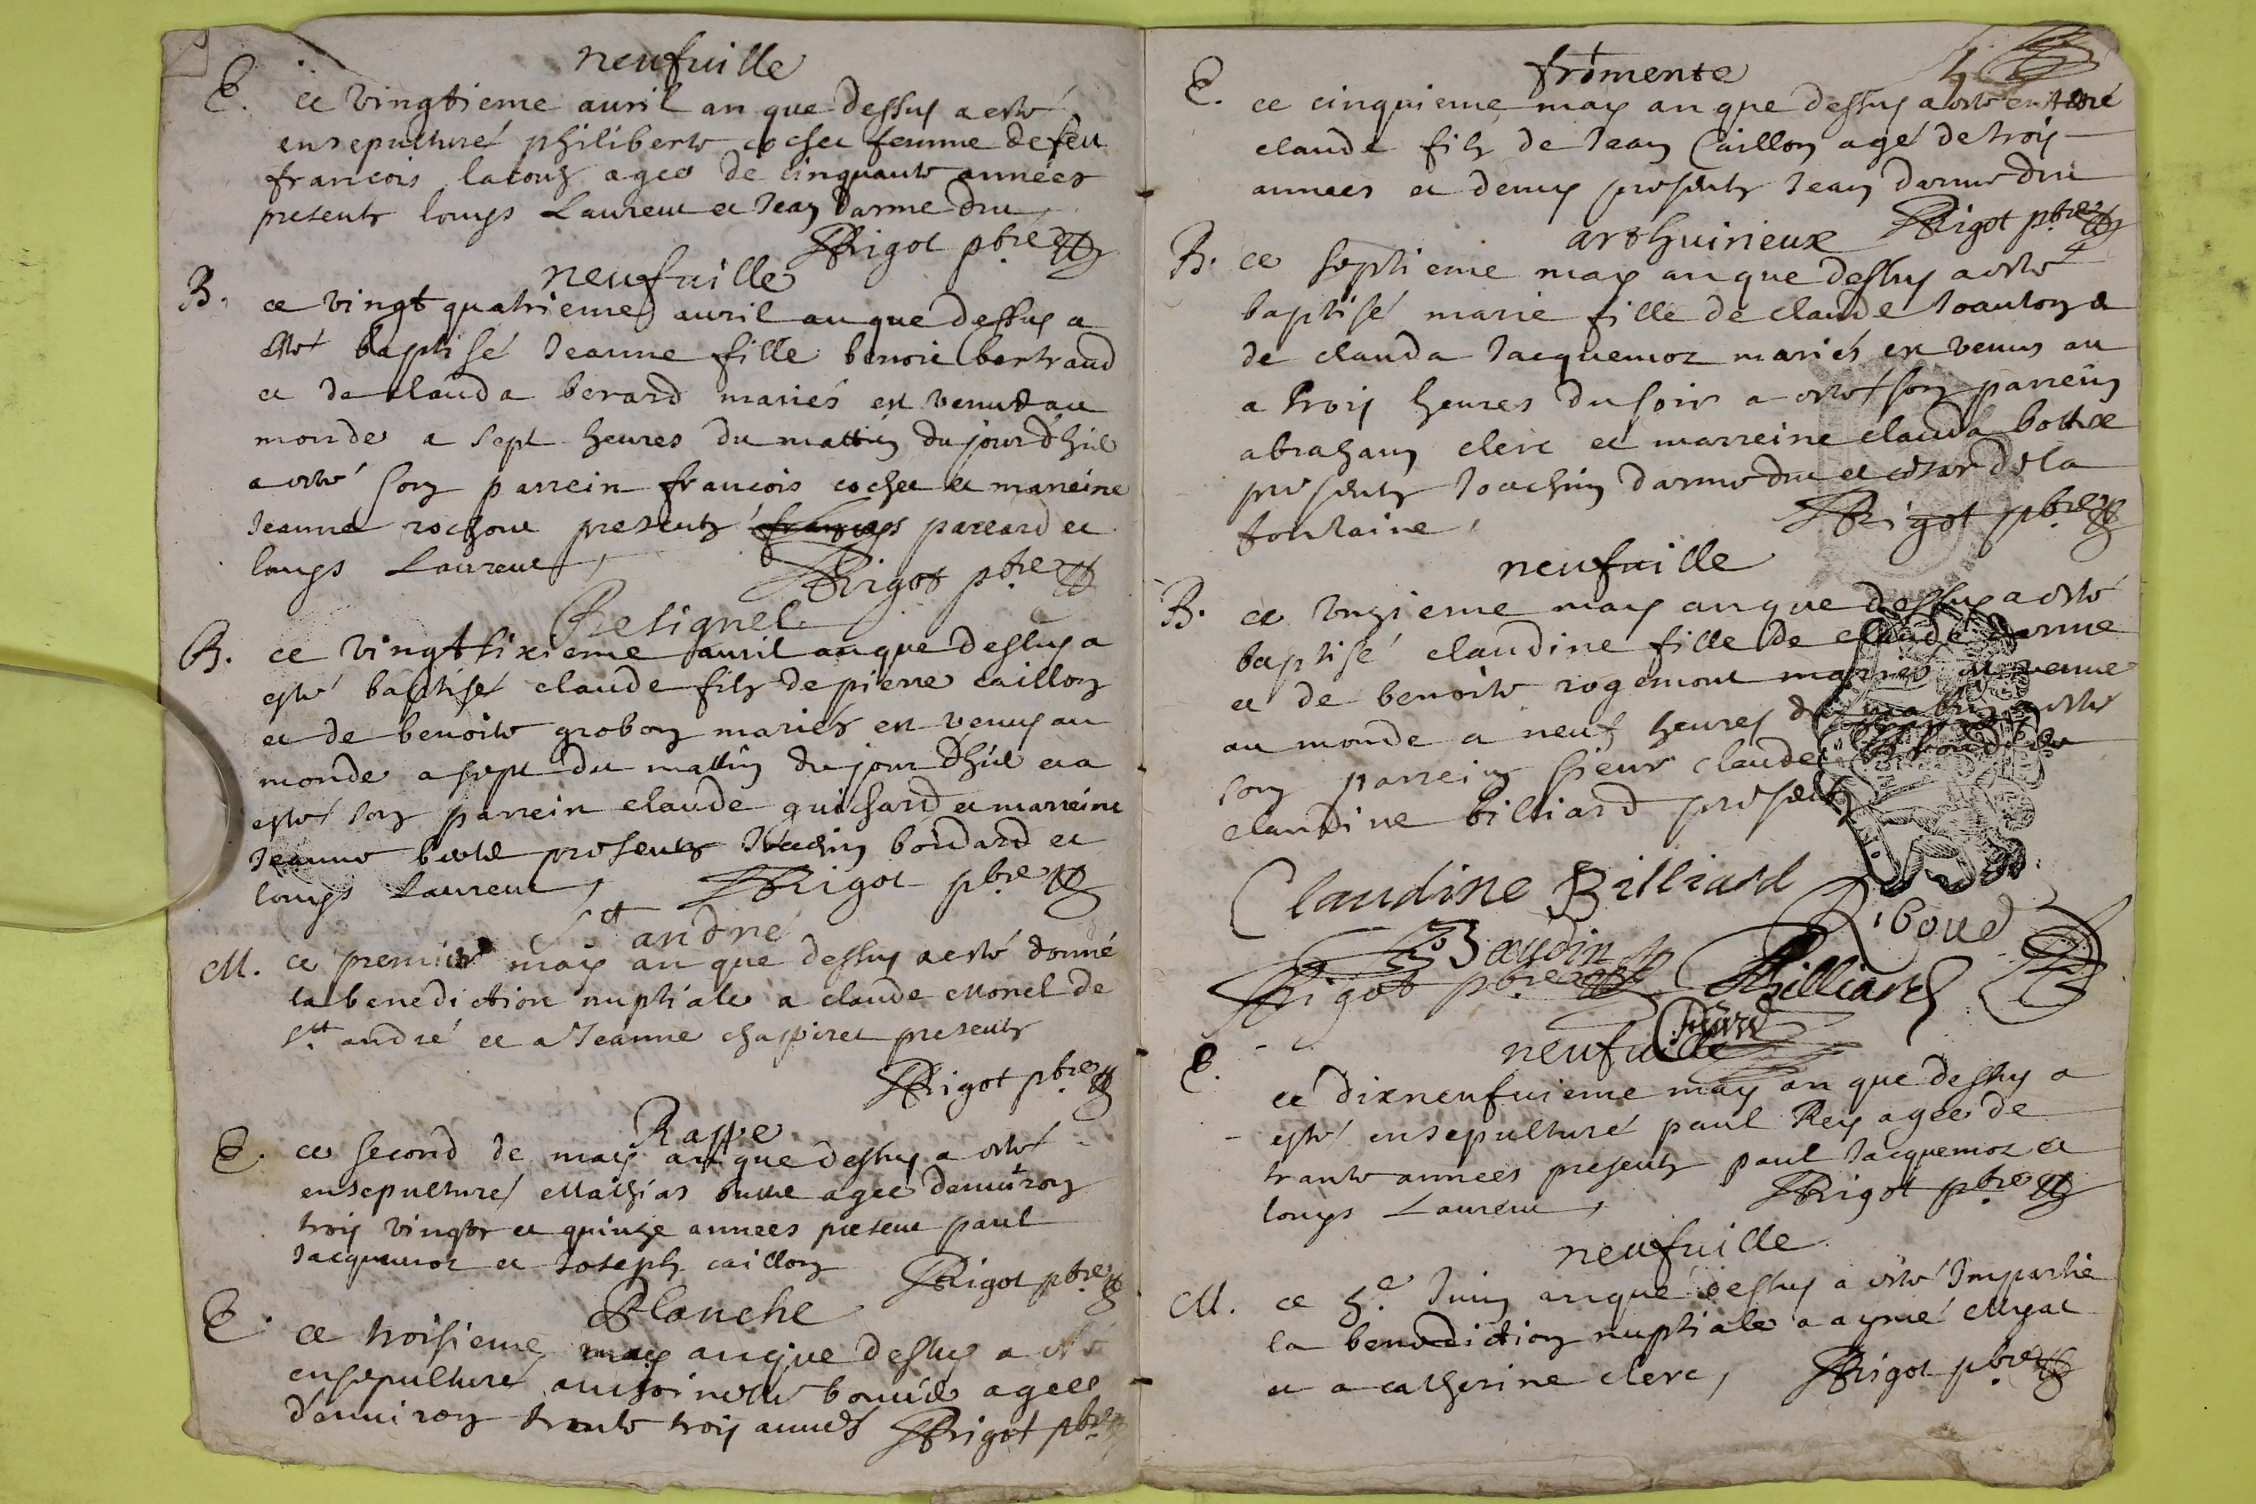 neufuille
E. ce vingtieme auril an que dessus a esté
ensepulturé philiberte cochet femme de feu
francois lacouz agee de cinquante années
presents louys Laurent et Jean darmedru
Rigot pbre
neufuille
B. ce vingt quatrieme auril an que dessus a
esté baptisé Jeanne fille benoit bertrand
et de clauda berard mariés est venue au
monde a sept heures du mattin du jourdhui
a esté son parrein francois cochet et marreine
Jeanne rochon presents pareard et
louys Laurent, Rigot pbre
Resignel
B. ce vingt sixieme auril an que dessus a
esté baptisé claude fils de pierre caillon
et de benoite grobon mariés est venus au
monde a sept du mattin du jourdhui et a
esté son parrein claude guichard et marreine
Jeanne presents Joachin boudard et
louys Laurent, Rigot pbre
St andré
M. ce premier may an que dessus a esté donné
la benediction nuptiale a claude Monel de
St andré et a Jeanne chapiret presents
Rigot pbre
Rappe
E. ce second de may an que dessus a esté
ensepulturé Mathias agee denuiron
trois vingts et quinze annees present paul
Jacquemoz et Joseph caillon Rigot pbre
Planche
E. ce troisieme may an que dessus a esté
ensepulturé anthoinette agee
d'enuiron trente trois années Rigot pbre
fromente
E. ce cinquieme may an que dessus a esté enterré
claude fils de Jean Caillon agé de trois
annees et demy presents Jean darmedru
Rigot pbre
arthuirieux
B. ce septieme may an que dessus a esté
baptisé marie fille de claude Joanton et
de clauda Jacquemoz mariés est venus au
a trois heures du soir a esté son parrein
abraham clerc et marreine clauda botte
presents Joachin darmedru et cesar de la
fontaine, Rigot pbre
neufuille
B. ce unzieme may an que dessus a esté
baptisé claudine fille de claude darme
et de benoite rogemont mariés est venue
au monde a neuf heures du mattin a esté
son parrein sieur claude
claudine billiard presents
Claudine Billiard
Riboud
Baudin
Rigot pbre Billiard
neufuille
E. ce dixneufuieme may an que dessus a
esté ensepulturé paul Rey agee de
trante annees presents paul Jacquemoz et
louys Laurent, Rigot pbre
neufuille
M. ce 5.e Juin an que dessus a esté Impartie
la benediction nuptiale a aymé Myat
et a catherine clerc, Rigot pbre